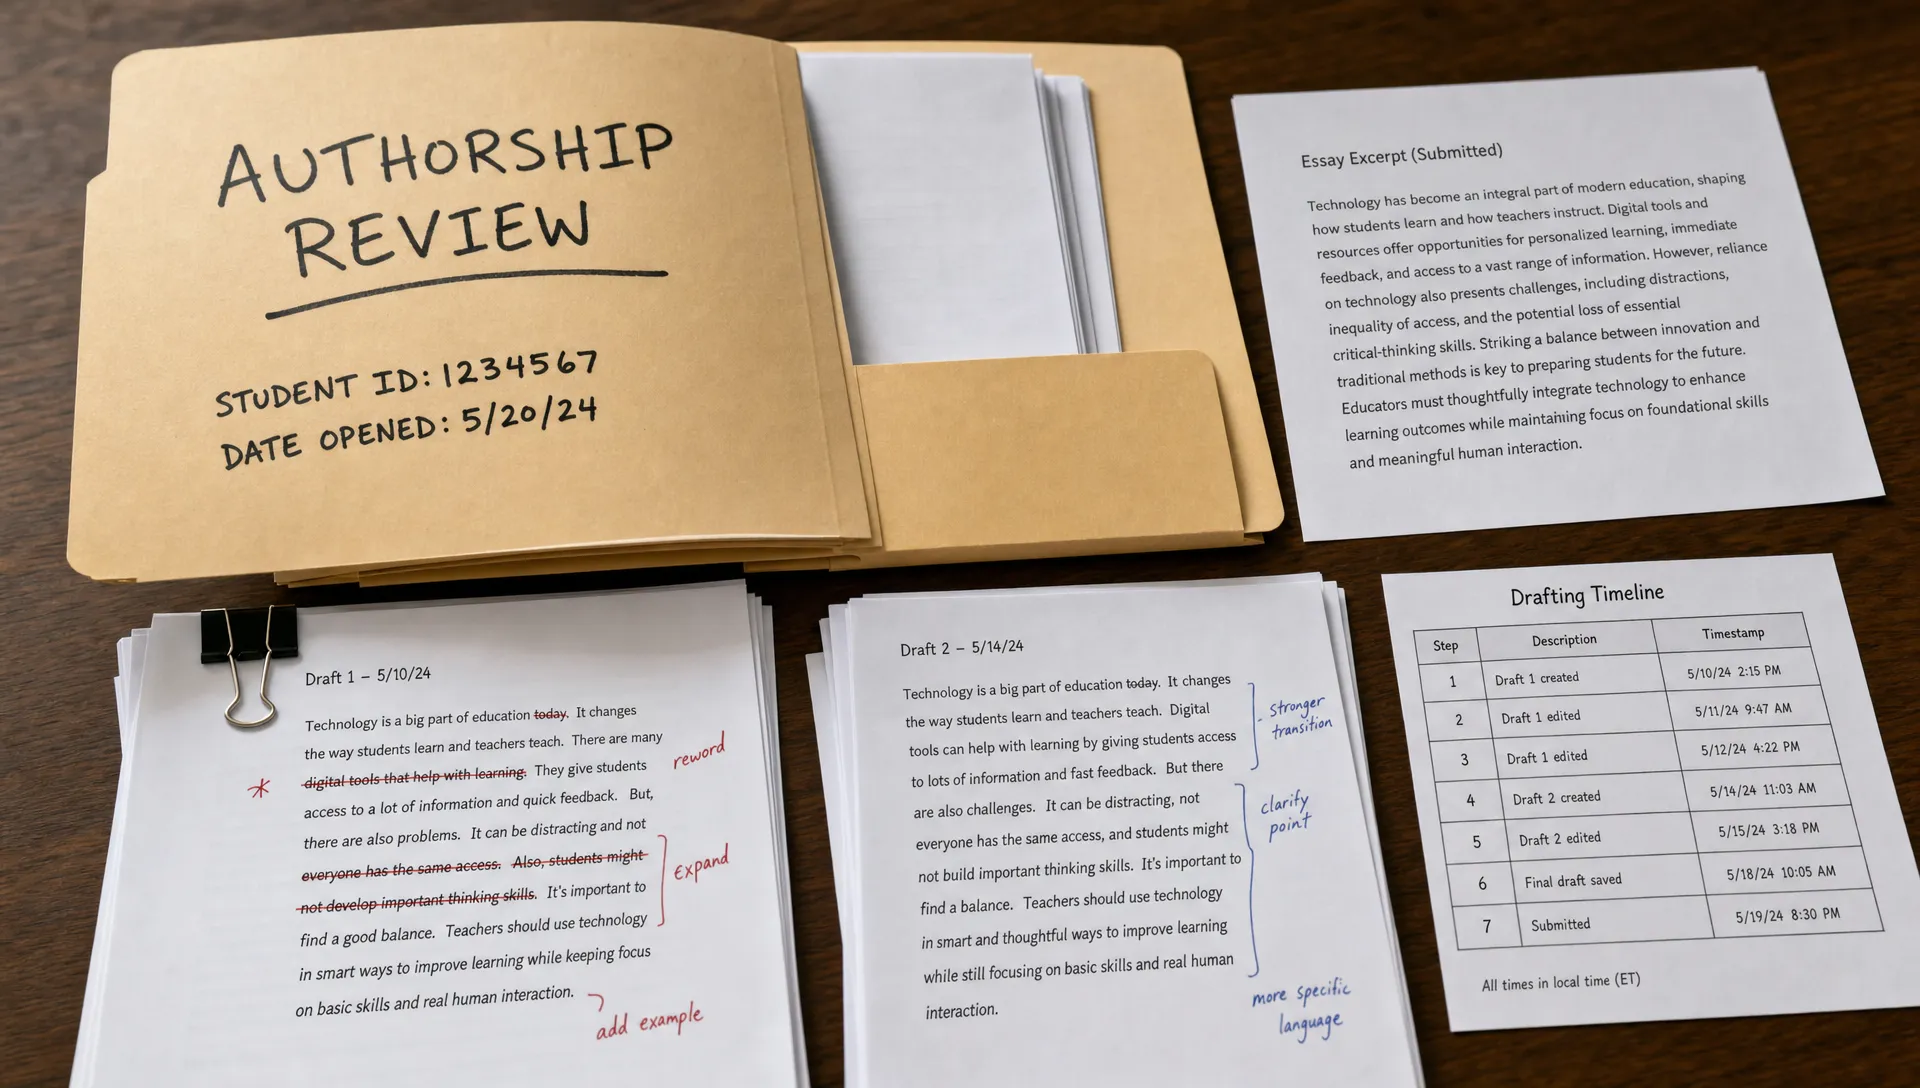 AUTHORSHIP
REVIEW
STUDENT ID: 1234567
DATE OPENED: 5/20/24
Essay Excerpt (Submitted)
Technology has become an integral part of modern education, shaping
how students learn and how teachers instruct. Digital tools and
resources offer opportunities for personalized learning, immediate
feedback, and access to a vast range of information. However, reliance
on technology also presents challenges, including distractions,
inequality of access, and the potential loss of essential
critical-thinking skills. Striking a balance between innovation and
traditional methods is key to preparing students for the future.
Educators must thoughtfully integrate technology to enhance
learning outcomes while maintaining focus on foundational skills
and meaningful human interaction.
Draft 1 – 5/10/24
Technology is a big part of education today. It changes
the way students learn and teachers teach. There are many
digital tools that help with learning. They give students
access to a lot of information and quick feedback. But,
there are also problems. It can be distracting and not
everyone has the same access. Also, students might
not develop important thinking skills. It's important to
find a good balance. Teachers should use technology
in smart ways to improve learning while keeping focus
on basic skills and real human interaction.
*
reword
expand
add example
Draft 2 – 5/14/24
Technology is a big part of education today. It changes
the way students learn and teachers teach. Digital
tools can help with learning by giving students access
to lots of information and fast feedback. But there
are also challenges. It can be distracting, not
everyone has the same access, and students might
not build important thinking skills. It's important to
find a balance. Teachers should use technology
in smart and thoughtful ways to improve learning
while still focusing on basic skills and real human
interaction.
stronger
transition
clarify
point
more specific
language
Drafting Timeline
Step Description Timestamp
1 Draft 1 created 5/10/24 2:15 PM
2 Draft 1 edited 5/11/24 9:47 AM
3 Draft 1 edited 5/12/24 4:22 PM
4 Draft 2 created 5/14/24 11:03 AM
5 Draft 2 edited 5/15/24 3:18 PM
6 Final draft saved 5/18/24 10:05 AM
7 Submitted 5/19/24 8:30 PM
All times in local time (ET)